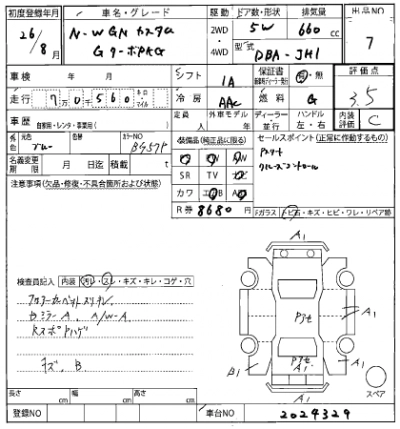 初度登録年月 車名・グレード 駆動 ドア数・形状 排気量 出品NO
26/8月 N-WGN カスタム 2WD・4WD 5W 660cc 7
Gターボ PKG 型式 DBA-JH1
車検 年 月 シフト IA 保証書 有・無 評価点
走行 7万0千560 キロ・マイル 冷房 AAC 燃料 G 3.5
車歴 自家用・レンタ・事業用( ) 定員 人 外車モデル 年 ディーラー・並行 ハンドル 左・右 内装評価 C
外色 ブルー 色替 カラーNO BG57P 装備品(純正品に限る) セールスポイント(正常に作動するもの)
名義変更期限 月 日迄 積載 t SR TV
クルーズコントロール
注意事項(欠品・修復・不具合箇所および状態) カワ エアB
R券 8680円
Fガラス トビ石・キズ・ヒビ・ワレ・リペア跡
A1
検査員記入 内装 汚レ・スレ・キズ・キレ・コゲ・穴
フロアカーペットスリキレ
ミラーA、A/W-A
RスポPハゲ
キズ、B
A1
B1
A1
A1
スペア
長さ cm 幅 cm 高さ cm
登録NO 車台NO 2024329